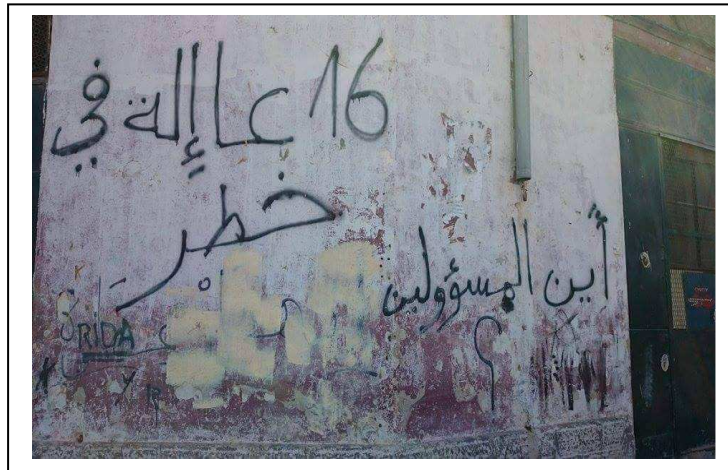 16 عاإلة في
خطر
أين المسؤولين
؟
RIDA